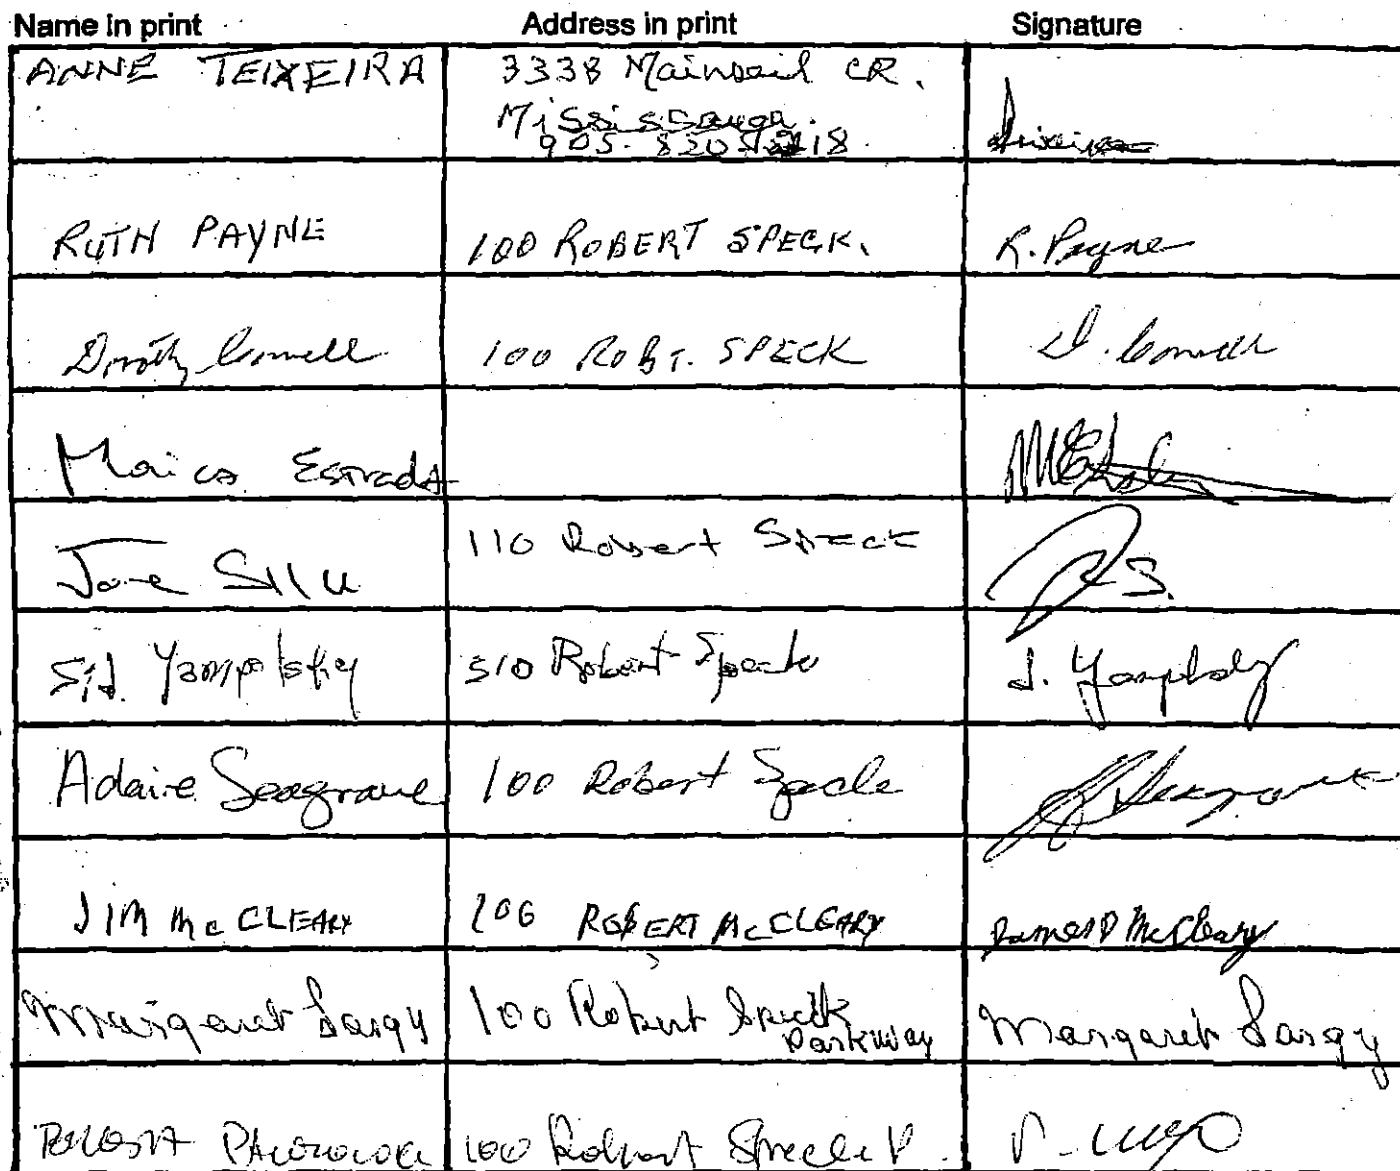 Name in print Address in print Signature
ANNE TEIXEIRA 3338 Mainsail CR.
Mississauga.
905-820-218
RUTH PAYNE 100 ROBERT SPECK. R. Payne
Dorothy 100 ROBT. SPECK D.
Estrada
110 Robert Speck S.
Sid. Yampolsky 310 Robert Speck S. Yampolsky
Adaire Seagrave 100 Robert Speck Seagrave
JIM McCLEARY 100 ROBERT McCLEARY James D McCleary
Margaret Sargy 100 Robert Speck Margaret Sargy
Parkway
100 Robert